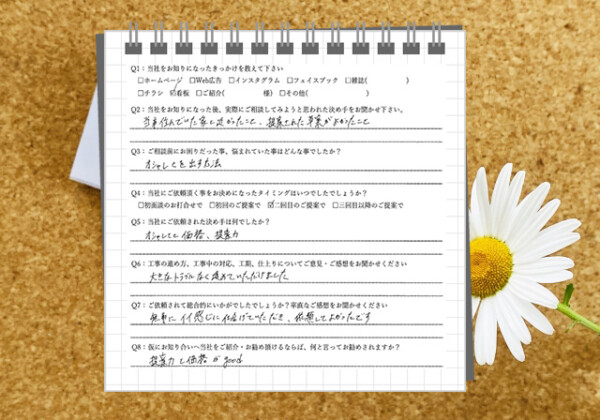 Q1：当社をお知りになったきっかけを教えて下さい
□ホームページ □Web広告 □インスタグラム □フェイスブック □雑誌( )
□チラシ ☑看板 □ご紹介( 様) □その他( )
Q2：当社をお知りになった後、実際にご相談してみようと思われた決め手をお聞かせ下さい。
当時住んでいた家と近かったこと、提案された草案がよかったこと
Q3：ご相談前にお困りだった事、悩まれていた事はどんな事でしたか？
オシャレさを出す方法
Q4：当社にご依頼頂く事をお決めになったタイミングはいつでしたでしょうか？
□初面談のお打合せで □初回のご提案で ☑二回目のご提案で □三回目以降のご提案で
Q5：当社にご依頼された決め手は何でしたか？
オシャレさと価格、提案力
Q6：工事の進め方、工事中の対応、工期、仕上りについてご意見・ご感想をお聞かせください
大きなトラブルなく進めていただけました
Q7：ご依頼されて総合的にいかがでしたでしょうか？率直なご感想をお聞かせください
無事にイイ感じに仕上げていただき、依頼してよかったです
Q8：仮にお知り合いへ当社をご紹介・お勧め頂けるならば、何と言ってお勧めされますか？
提案力と価格がgood